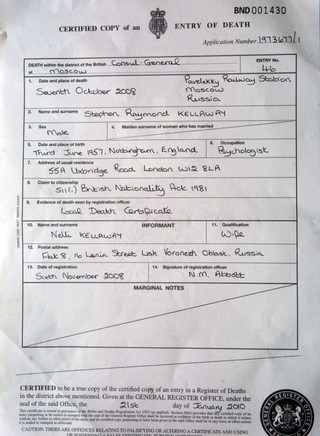 BND001430
CERTIFIED COPY of an ENTRY OF DEATH
Application Number 1973677/1
DEATH within the district of the British Consul-General
at Moscow
ENTRY No.
46
1. Date and place of death
Seventh October 2008
Paveletsky Railway Station
Moscow
Russia
2. Name and surname
Stephen Raymond KELLAWAY
3. Sex
Male
4. Maiden surname of woman who has married
5. Date and place of birth
Third June 1957, Nottingham, England
6. Occupation
Psychologist
7. Address of usual residence
55A Uxbridge Road London W12 8LA
8. Claim to citizenship
S11(1) British Nationality Act 1981
9. Evidence of death seen by registration officer
Local Death Certificate
10. Name and surname
INFORMANT
11. Qualification
Nelli KELLAWAY
Wife
12. Postal address
Flat 8, 16 Lenin Street Lisk Voronezh Oblast, Russia
13. Date of registration
Sixth November 2008
14. Signature of registration officer
N.M. Abbott
MARGINAL NOTES
CERTIFIED to be a true copy of the certified copy of an entry in a Register of Deaths
in the district above mentioned. Given at the GENERAL REGISTER OFFICE, under the
seal of the said Office, the 21st day of January 2010
CAUTION: THERE ARE OFFENCES RELATING TO FALSIFYING OR ALTERING A CERTIFICATE AND USING